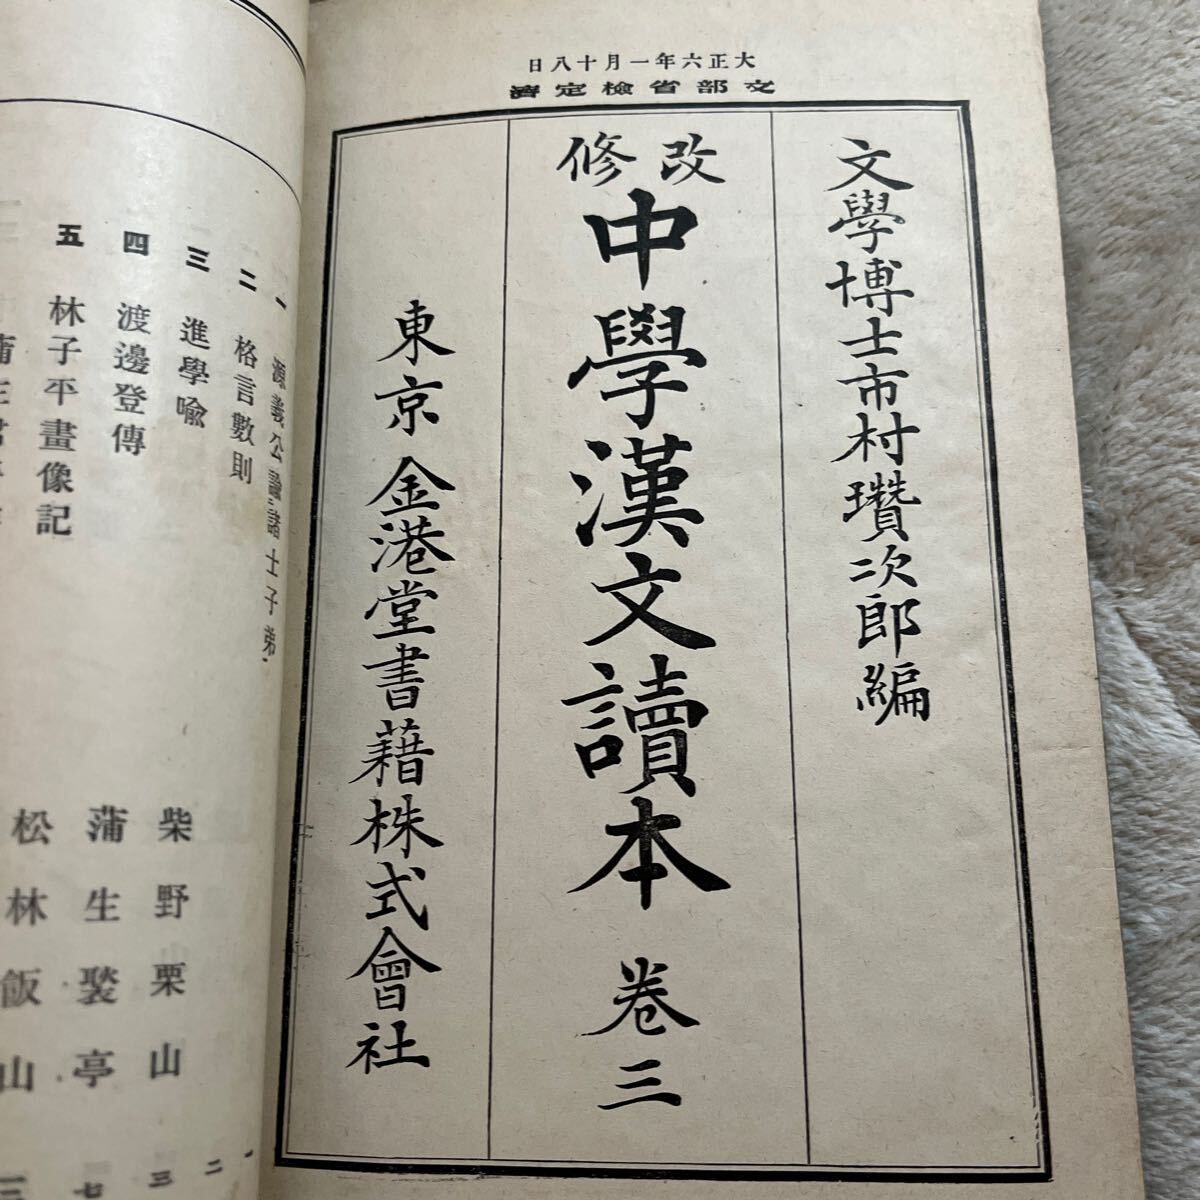 大正六年一月十八日
文部省檢定濟
文學博士市村瓚次郎編
改修
中學漢文讀本 卷三
東京 金港堂書藉株式會社
一 源義公諭諸士子弟 一
二 格言數則 二
三 進學喻 柴野栗山 三
四 渡邊登傳 蒲生褧亭
五 林子平畫像記 松林飯山